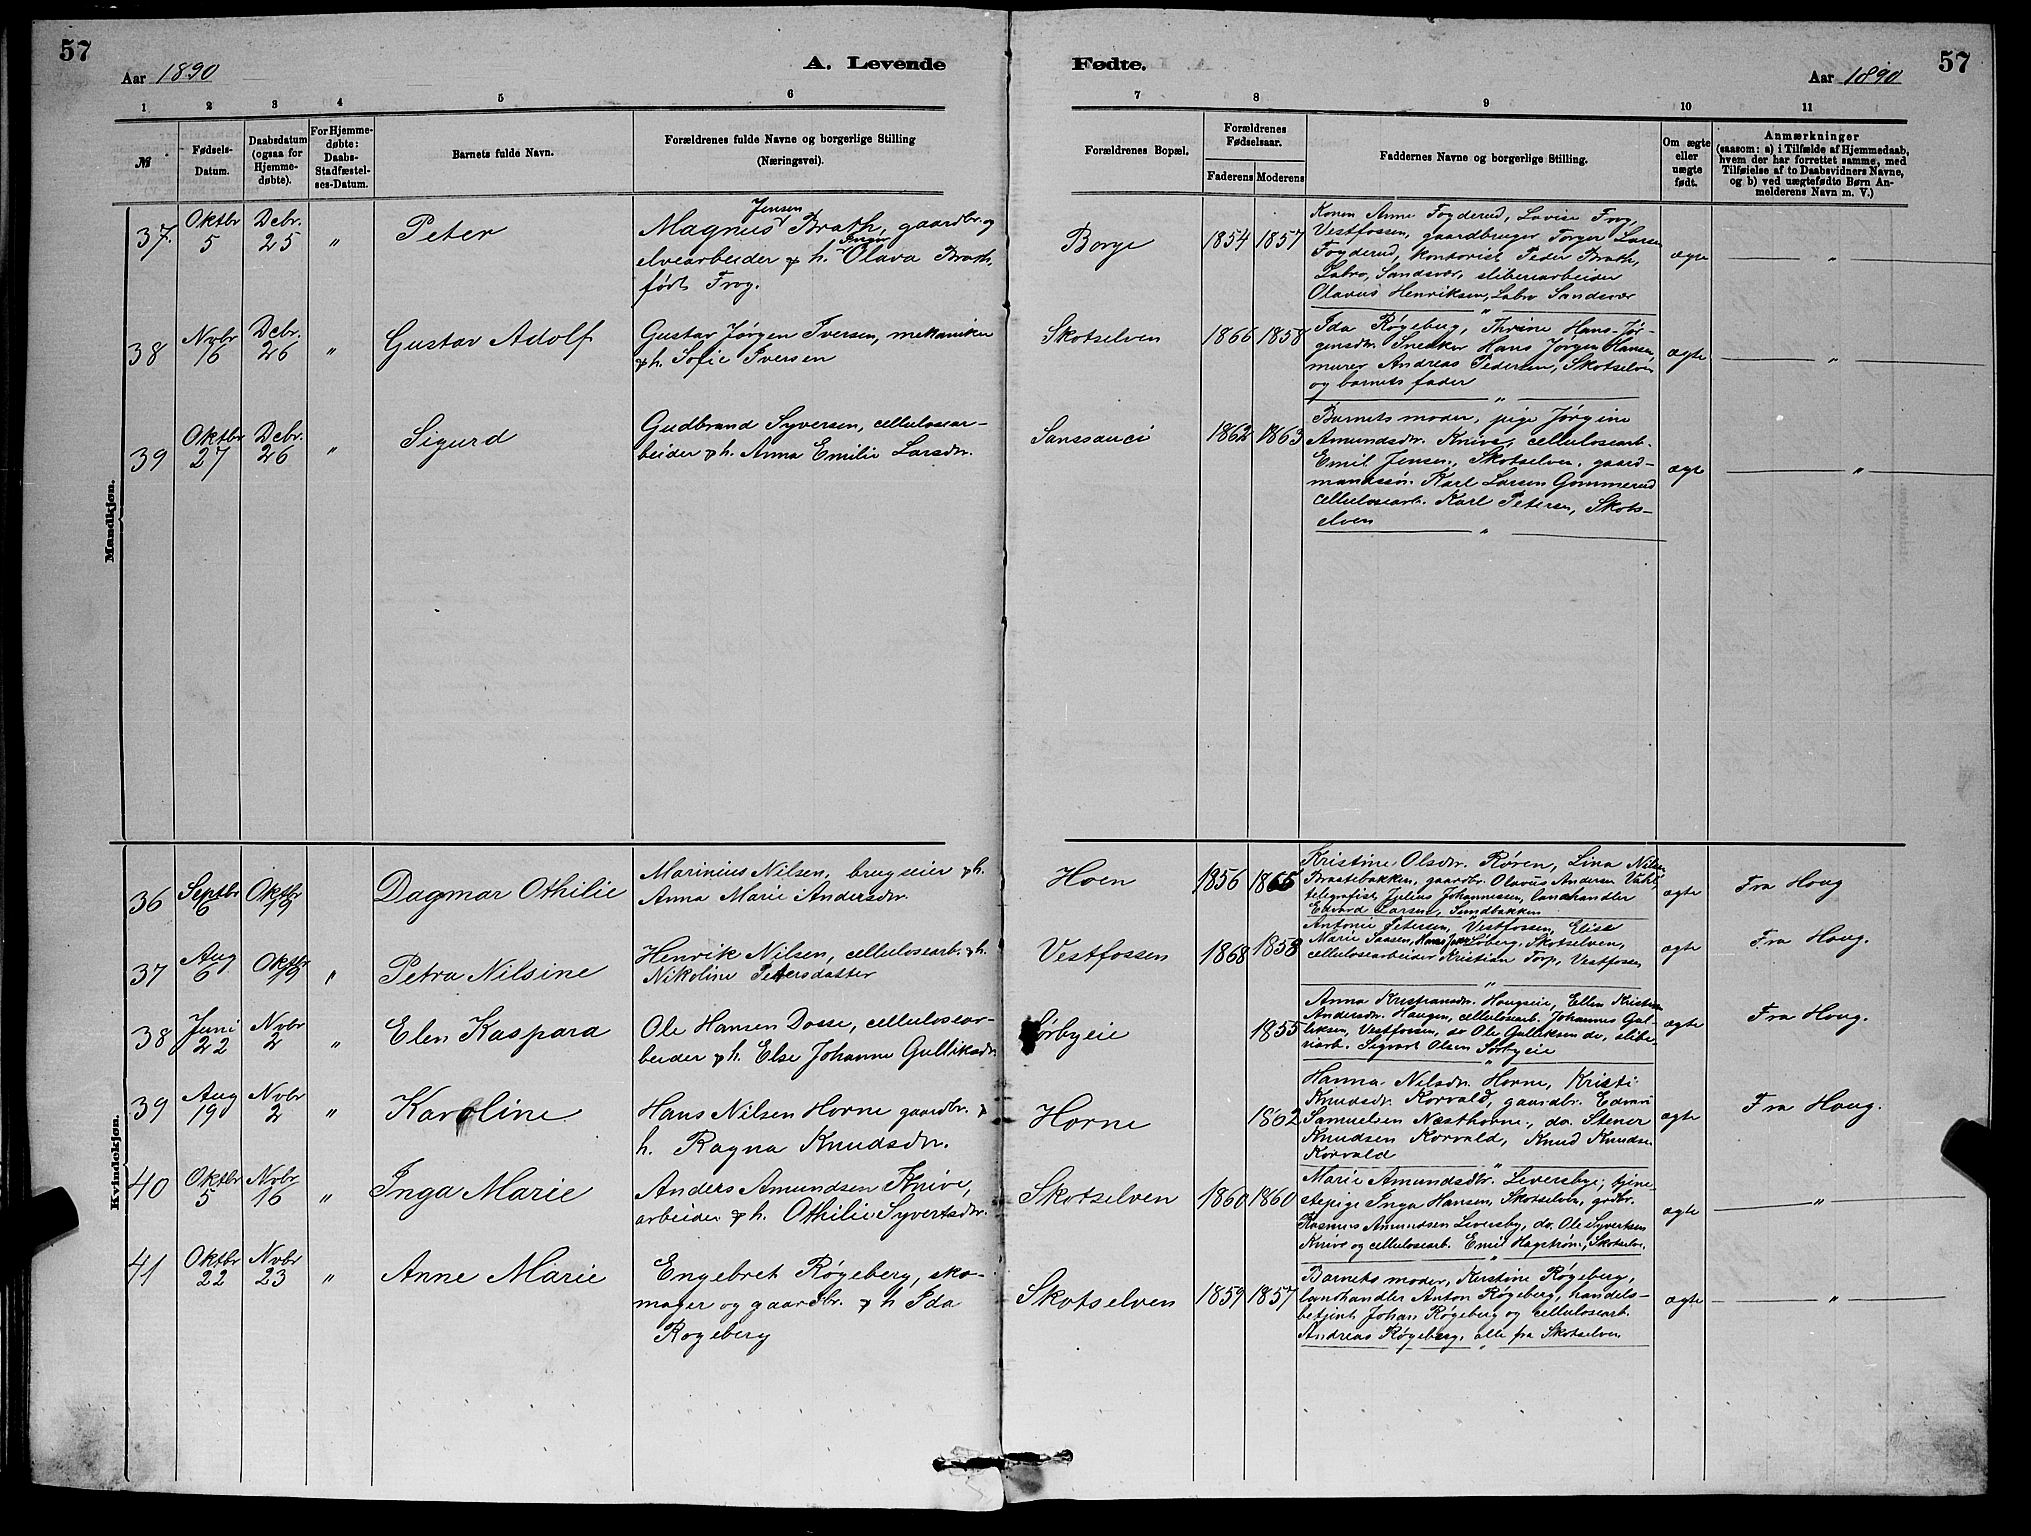 57
Aar 1890
A. Levende
1 2 3 4 5 6
№
Fødsels-
Datum.
Daabsdatum
(ogsaa for
Hjemme-
døbte).
For Hjemme-
døbte:
Daabs-
Stadfæstel-
ses-Datum.
Barnets fulde Navn.
Forældrenes fulde Navne og borgerlige Stilling
(Næringsvei).
Mandkjøn.
37. Oktbr 5 Dcbr. 25 " Peter
Jensen
Magnus Brath, gaardbr. og
Inger
elvearbeider & h. Olava Brath,
født Frog.
38 Nvbr 6 Dcbr. 26 " Gustav Adolf
Gustav Jørgen Iversen, mekaniker
& h. Sofie Iversen
39 Oktbr 27 Dcbr. 26 " Sigurd
Gudbrand Syversen, cellulosear-
beider & h. Anna Emilie Larsdr.
Kvindekjøn.
36 Septbr 6 Oktbr 19 Dagmar Othilie
Marinius Nilsen, brugseier & h.
Anna Marie Andersdr.
37 Aug 6 Oktbr 19 " Petra Nilsine
Henrik Nilsen, cellulosearb. & h.
Nikoline Petersdatter
38 Juni 22 Nvbr 2 " Elen Kaspara
Ole Hansen Dosse, cellulosear-
beider & h. Else Johanne Gulliksdr.
39 Aug 19 Nvbr 2 " Karoline
Hans Nilsen Horne gaardbr. &
h. Ragna Knudsdr.
40 Oktbr 5 Nvbr 16 " Inga Marie
Anders Amundsen Knive,
arbeider & h. Othilie Syvertsdr.
41 Oktbr 22 Nvbr 23 " Anne Marie
Engebret Røgeberg, sko-
mager og gaardbr. & h Ida
Rogeberg
57
Fødte.
Aar 1890
7 8 9 10 11
Forældrenes Bopæl.
Forældrenes
Fødselsaar.
Faderens Moderens
Faddernes Navne og borgerlige Stilling.
Om ægte
eller
uægte
født.
Anmærkninger
(saasom: a) i Tilfælde af Hjemmedaab,
hvem der har forrettet samme, med
Tilføielse af to Daabsvidners Navne,
og b) ved uægtefødte Børn An-
melderens Navn m. V.)
Borge 1854 1857
Konen Anne Fogderud, Lovise Frog,
Vestfossen, gaardbruger Torger Larsen
Fogderud, kontorist Peder Brath,
Labro, Sandsvær, sliberiarbeider
Olavus Henriksen, Labro Sandsvær
ægte "
Skotselven 1866 1858
Ida Røgeberg, Thrine Hans-Jør-
gensdr. Snedker Hans Jørgen Hansen,
murer Andreas Pedersen, Skotselven
og barnets fader
ægte "
Sanssouci 1862 1863
Barnets moder, pige Jørgine
Amundsdr. Knive, cellulosearb.
Emil Jensen, Skotselven, gaard-
mandssøn Karl Larsen Gommerud
cellulosearb. Karl Petersen, Skots-
elven
ægte "
Hoen 1856 1865
Kristine Olsdr. Røren, Lina Nilsen
Brastebakken, gaardbr. Olavus Andersen
telegrafist Julius Johannessen, landhandler
Edvard Larsen, Sundbakken
ægte Fra Houg
Vestfossen 1868 1858
Antonie Petersen, Vestfossen, Elise
Marie Saasen, Løberg, Skotselven,
cellulosearbeider Kristian Torp, Vestfossen
ægte Fra Houg.
Sørbyeie 1855
Anna Kristiansdr. Hougseie, Ellen Kristine
Andersdr. Haugen, cellulosearb. Johannes Gul-
liksen, Vestfossen, do Ole Gulliksen do, slibe-
riarb. Sigvart Olsen Sørbyeie
ægte Fra Houg.
Horne 1862
Hanna Nilsdr. Horne, Kristi
Knudsdr. Korvald, gaardbr. Edvard
Samuelsen Næsthorne, do. Stener
Knudsen Korvald, Knud Knudsen
Korvald
ægte Fra Houg.
Skotselven 1860 1860
Marie Amundsdtr. Leversbye, tjene-
stepige Inga Hansen, Skotselven, grdbr.
Rasmus Amundsen Leversby, do. Ole Syvertsen
Knive og cellulosearb. Emil Hagstrøm, Skotselve.
ægte "
Skotselven 1859 1857
Barnets moder, Kerstine Røgeberg,
landhandler Anton Røgeberg, handels-
betjent Johan Røgeberg og cellulosearb.
Andreas Røgeberg, alle fra Skotselven
ægte "